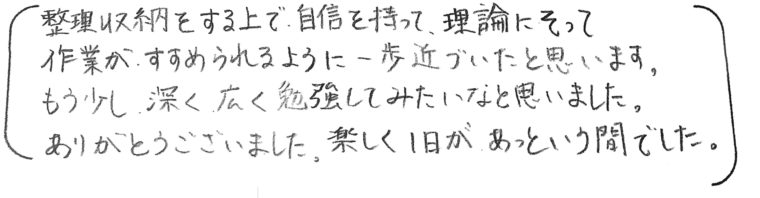 整理収納をする上で、自信を持って、理論にそって
作業が、すすめられるように一歩近づいたと思います。
もう少し、深く、広く勉強してみたいなと思いました。
ありがとうございました。楽しく1日が、あっという間でした。